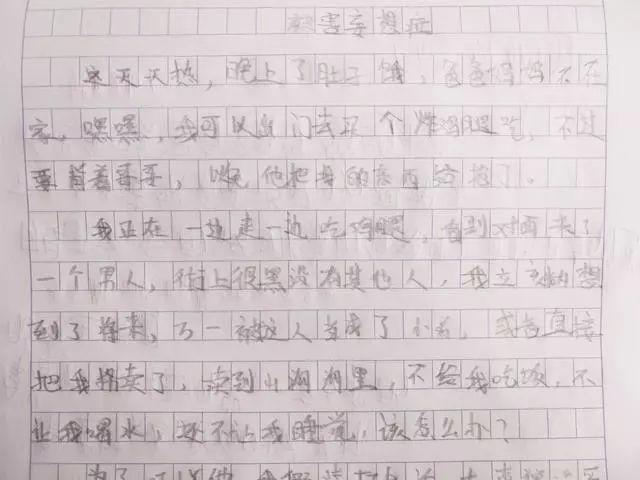 被害妄想症
寒天天热，晚上了肚子饿，爸爸妈妈不在
家，嘿嘿，我可以出门去买个炸鸡腿吃，不过
要背着哥哥，以免他把我的东西给抢了。
我正在一边走一边吃鸡腿，看到对面来了
一个男人，街上很黑没有其他人，我立刻想
到了将来，万一被这人当成了小孩，或者直接
把我拐卖了，卖到山沟沟里，不给我吃饭，不
让我喝水，还不让我睡觉，该怎么办？
为了